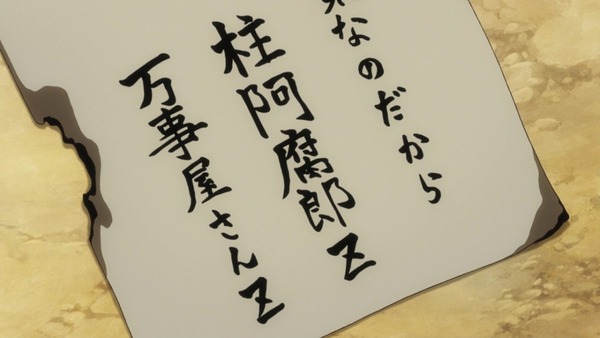 なのだから
柱阿腐郎Z
万事屋さんZ